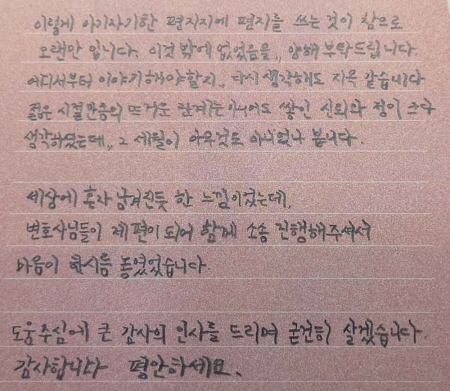 이렇게 아기자기한 편지지에 편지를 쓰는 것이 참으로
오랜만 입니다. 이것 밖에 없었음을,, 양해 부탁드립니다.
어디서부터 이야기해야할지,, 다시 생각해도 지옥 같습니다
젊은 시절만큼의 뜨거운 관계는 아니어도 쌓인 신뢰와 정이 크다
생각하였는데,, 그 세월이 아무것도 아니었나 봅니다.
세상에 혼자 남겨진듯 한 느낌이었는데,
변호사님들이 제 편이 되어 함께 소송 진행해주셔서
마음이 한시름 놓였었습니다.
도움주심에 큰 감사의 인사를 드리며 굳건히 살겠습니다.
감사합니다 평안하세요.